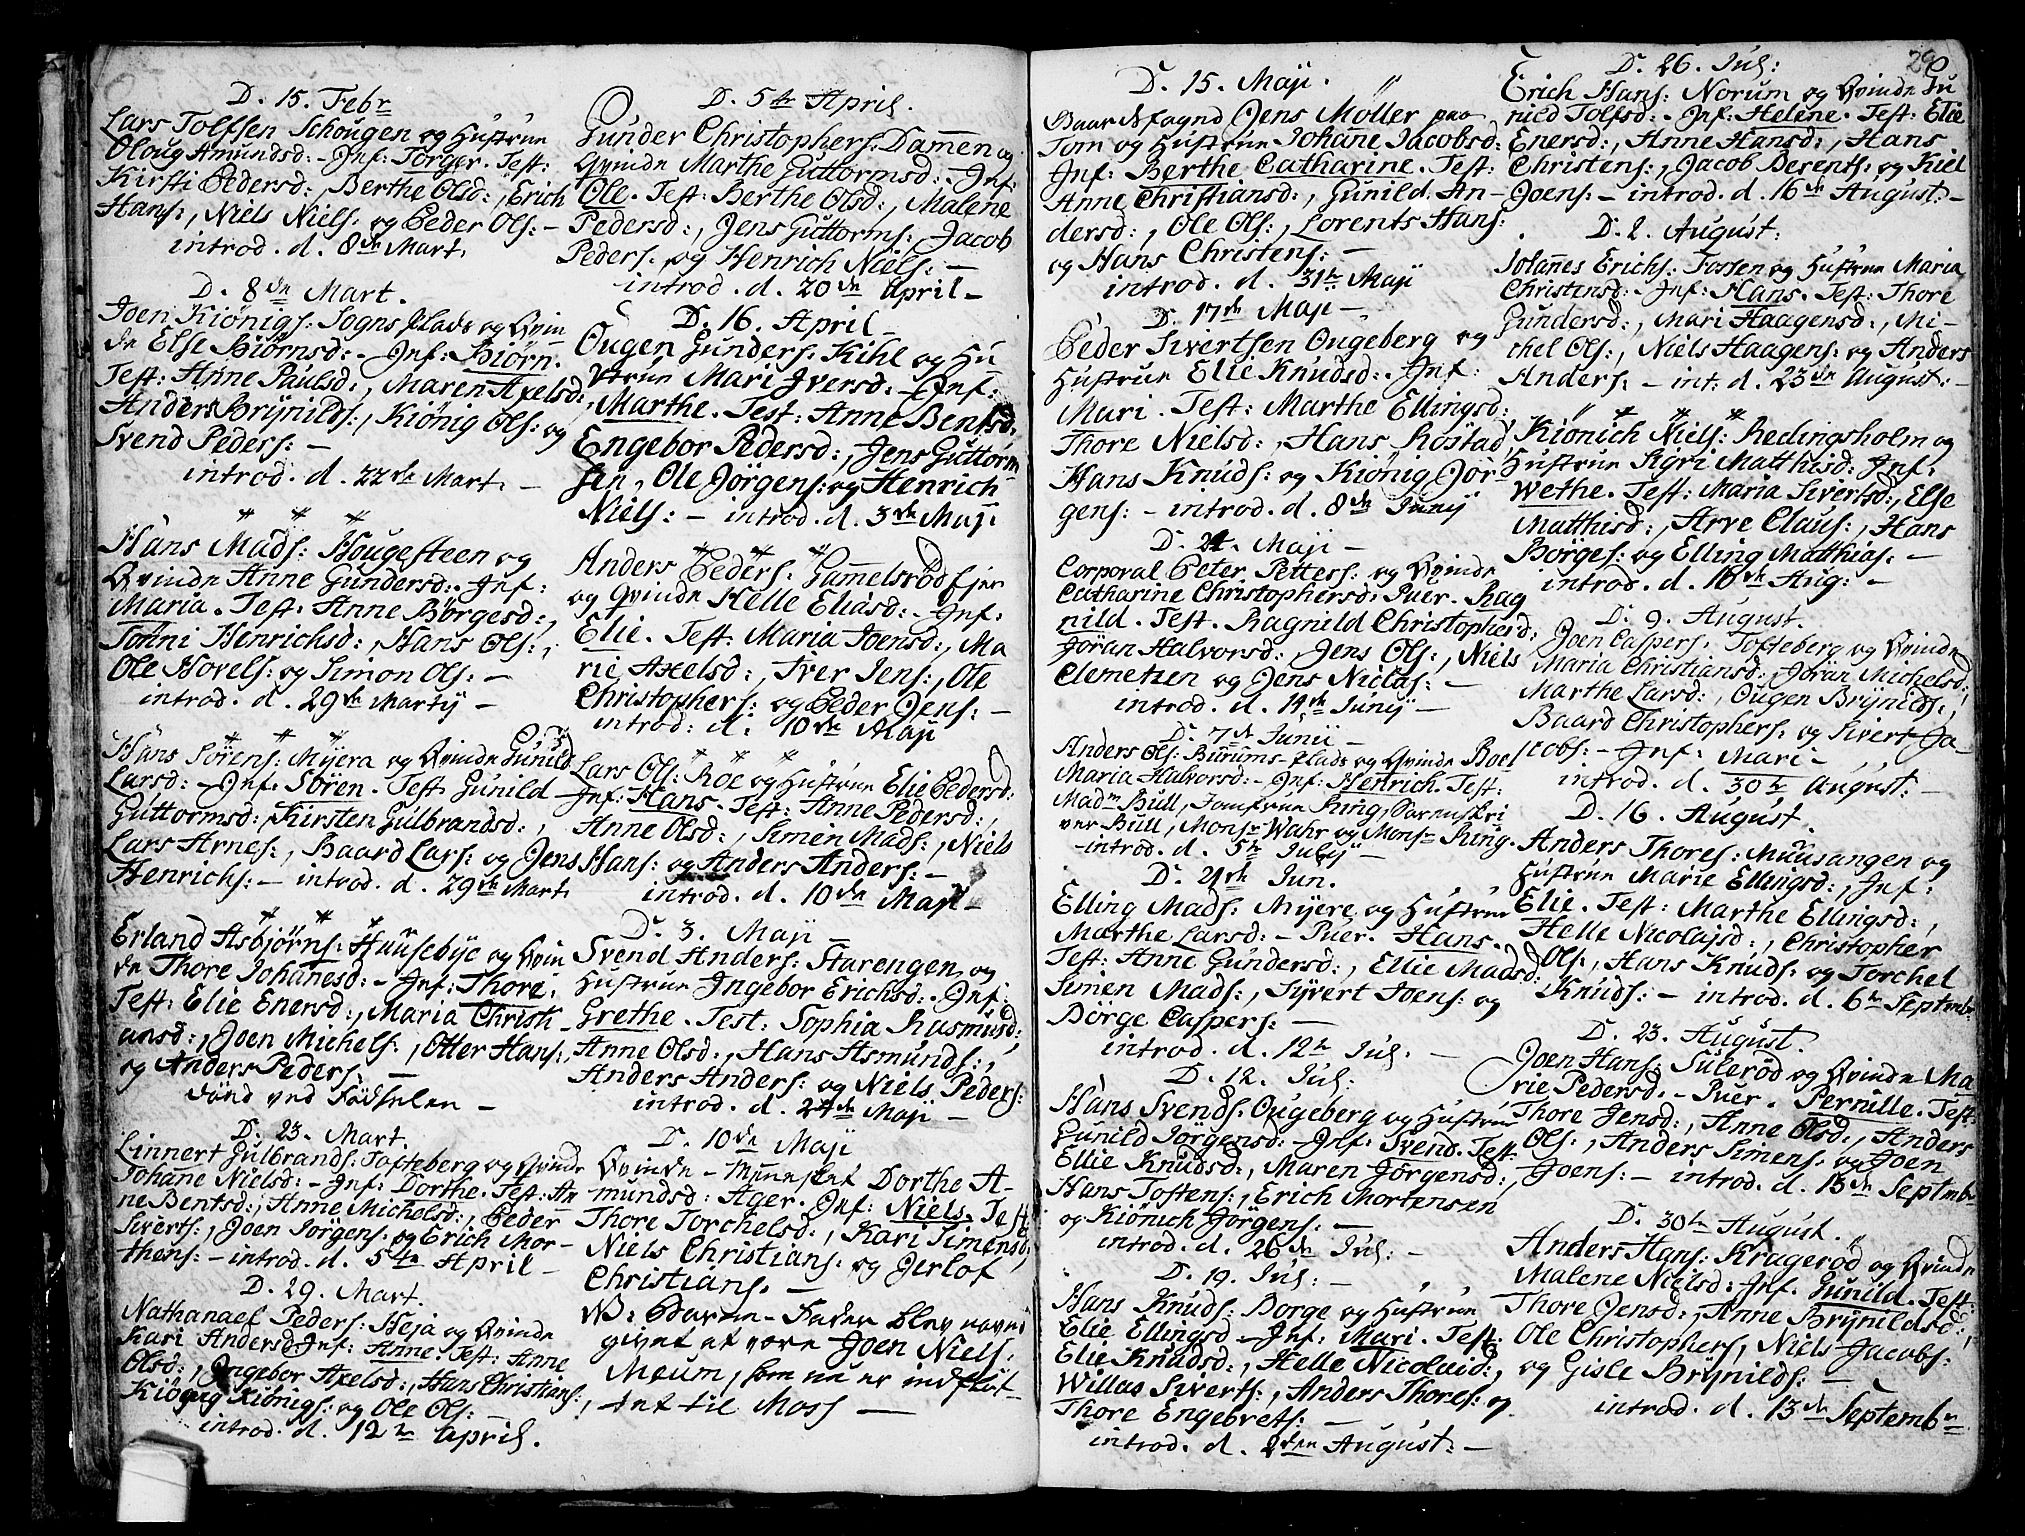 D. 15. Febr
Lars Tolfsen Schougen og Hustrue
Oloug Amundsd: - Inf: Torger. Test:
Kirsti Pedersd:, Berthe Olsd:, Erich
Hans:, Niels Niels: og Peder Ols: -
introd. d. 8de Mart.
D. 8de Mart.
Joen Kiönigs: Sogns plads og Qvin
de Else Biörnsd: - Inf: Biörn.
Test: Anne Paulsd:, Maren Axelsd:,
Anders Brÿnilds:, Kiönig Ols: og
Svend Peders: -
introd. d. 22de Mart. -
* * *
Hans Mads: Hougesteen og
Qvinde Anne Gundersd: - Inf:
Maria. Test: Anne Börgesd:,
Tonni Henrichsd:, Hans Ols:,
Ole Hovels: og Simon Ols: -
introd. d. 29de Martij -
* * *
Hans Sörens: Mÿera og Qvinde Gunild
Larsd: - Inf: Sören. Test: Gunild
Guttormsd:, Kirsten Gulbrandsd:,
Lars Arnes:, Baard Lars: og Jens
Henrichs: - introd. d. 29de Mart.
* * *
Erland Asbjörns: Huusebÿe og Qvin
de Thore Johanesd: - Inf: Thore.
Test: Elie Enersd:, Maria Christi
ansd:, Joen Michels:, Otter Hans:,
og Anders Peders: -
död ved Födselen -
D. 23. Mart.
Linnert Gulbrands: Tofteberg og Qvinde
Johane Nielsd: - Inf: Dorthe. Test: An
ne Bentsd:, Anne Michelsd:, Peder
Siverts:, Joen Jörgens: og Erich Mor-
thens: - introd. d. 5te April -
D. 29. Mart.
Nathanael Peders: Heja og Qvinde
Kari Andersd: Inf: Anne. Test: Anne
Olsd:, Ingebor Axelsd:, Hans Christians:,
Kiönig Kiönigs: og Ole Ols: -
introd. d. 12te April.
D. 5te April.
Gunder Christophers: Damen og
Qvinde Marthe Guttormsd: - Inf:
Ole. Test: Berthe Olsd:, Malene
Pedersd:, Jens Guttorms:, Jacob
Peders: og Henrich Niels: -
introd. d. 20de April -
D. 16. April -
Ougen Gunders: Kihl og Hu
strue Mari Iversd: - Inf:
Marthe. Test: Anne Bentsd:,
Engebor Pedersd:, Jens Guttorm
sen, Ole Jörgens: og Henrich
Niels: - introd. d. 3de Maji
* * *
Anders Peders: Gamelsrödfjer
og Qvinde Helle Eliasd: - Inf:
Elie. Test: Maria Joensd:, Ma
rie Axelsd:, Iver Jens:, Ole
Christophers: og Peder Jens: -
introd: d. 10de Maji
* * *
Lars Ols: Roe og Hustrue Elie Pedersd:
Inf: Hans. Test: Anne Pedersd:,
Anne Olsd:, Simen Mads:, Niels
Hans: og Anders Anders: -
introd. d. 10de Maji -
D. 3. Maji -
Svend Anders: Starengen og
Hustrue Ingebor Erichsd: - Inf:
Grethe. Test: Sophia Rasmusd:,
Anne Olsd:, Hans Asmunds:,
Anders Anders: og Niels Peders:
introd. d. 24de Maji -
D. 10de Maji
Qvinde-Mennesket Dorthe A-
mundsd: Ager. Inf: Niels. Test:
Thore Torchelsd:, Kari Simensd:,
Niels Christians: og Jerlof
Christians. -
NB: Barne-Fader blev navn
givet at være Joen Niels:
Meum, som nu er indflüt-
tet til Moss -
29
D. 15. Maji.
Baardsfogd Jens Möller paa
Tom og Hustrue Johane Jacobsd:
Inf: Berthe Catharine. Test:
Anne Christiansd:, Gunild An-
dersd:, Ole Ols:, Lorents Hans:
og Hans Christens: -
introd. d. 31te Maji
D. 17de Maji -
Peder Sivertsen Ougeberg og
Hustrue Elie Knudsd: - Inf:
Mari. Test: Marthe Ellingsd:,
Thore Nielsd:, Hans Röstad,
Hans Knuds: og Kiönig Jör
gens: - introd. d. 8de Junij
D. 24. Maji -
Corporal Peter Petters: og Qvinde
Catharine Christophersd: Puer. Rag
nild. Test. Ragnild Christophersd:,
Jöran Halvorsd:, Jens Ols:, Niels
Clemetsen og Jens Niclas: -
introd. d. 14de Junij -
D. 7de Junii -
Anders Ols: Burums-plads og Qvinde Boel
Maria Halvorsd: - Inf: Henrich. Test:
Madm Bull, Jomfrue Ring, Sorenskri
ver Bull, Monsr Wahr og Monsr Ring.
introd. d. 5te Julij -
D. 21de Jun.
Elling Mads: Mÿere og Hustrue
Marthe Larsd: - Puer. Hans.
Test: Anne Gundersd:, Ellie Madsd:,
Simen Mads:, Sÿvert Joens: og
Börge Caspers: -
introd. d. 12te Jul: -
D. 12. Jul:
Hans Svends: Ougeberg og Hustrue
Gunild Jörgensd: - Inf: Svend. Test:
Ellie Knudsd:, Maren Jörgensd:,
Hans Tostens:, Erich Mortensen
og Kiönich Jörgens: -
introd. d. 26de Jul: -
D. 19. Jul: -
Hans Knuds: Borge og Hustrue
Elie Ellingsd - Inf: Mari. Test:
Elie Knudsd:, Helle Nicolaid:,
Willas Siverts:, Anders Thores: og
Thore Engebrets: -
introd. d. 2den August: -
D. 26. Jul:
Erich Hans: Norum og Qvinde Gu
nild Tolfsd: - Inf: Helene. Test: Elie
Enersd:, Anne Hansd:, Hans
Christens:, Jacob Berents: og Kiel
Joens: - introd. d. 16de August: -
D. 2. August:
Johannes Erichs: Fossen og Hustrue Maria
Christensd: - Inf: Hans. Test: Thore
Gundersd:, Mari Haagensd:, Mi-
chel Ols:, Niels Haagens: og Anders
Anders: - int: d. 23de August: -
* * *
Kiönich Niels: Redingsholm og
Hustrue Sigri Matthisd: Inf:
Wethe. Test: Maria Sivertsd:, Else
Matthisd:, Arve Claus:, Hans
Börges: og Elling Matthias: -
introd. d. 16de Aug: -
D. 9. August.
Joen Caspers: Tofteberg og Qvinde
Maria Christiansd:, Jöran Michelsd:,
Marthe Larsd:, Ougen Brÿnilds:,
Baard Christophers: og Sivert Ja-
cobs: - Inf: Mari -
introd. d. 30te August: -
D. 16. August.
Anders Thores: Muusangen og
Hustrue Marie Ellingsd:, Inf:
Elie. Test: Marthe Ellingsd:,
Helle Nicolajsd:, Christopher
Ols:, Hans Knuds: og Torchel
Knuds: - introd. d. 6te Septembr
D. 23. August.
Joen Hans: Suleröd og Qvinde Ma
rie Pedersd. - Puer. Pernille. Test:
Thore Jensd:, Anne Olsd:, Anders
Ols:, Anders Simens: og Joen
Joens: - introd. d. 13de Septembr
D. 30te August.
Anders Hans: Krageröd og Qvinde
Malene Nielsd: Inf. Gunild. Test:
Thore Jensd:, Anne Brÿnildsd:,
Ole Christophers, Niels Jacobs:
og Gisle Brÿnilds: -
introd. d. 13de Septembr